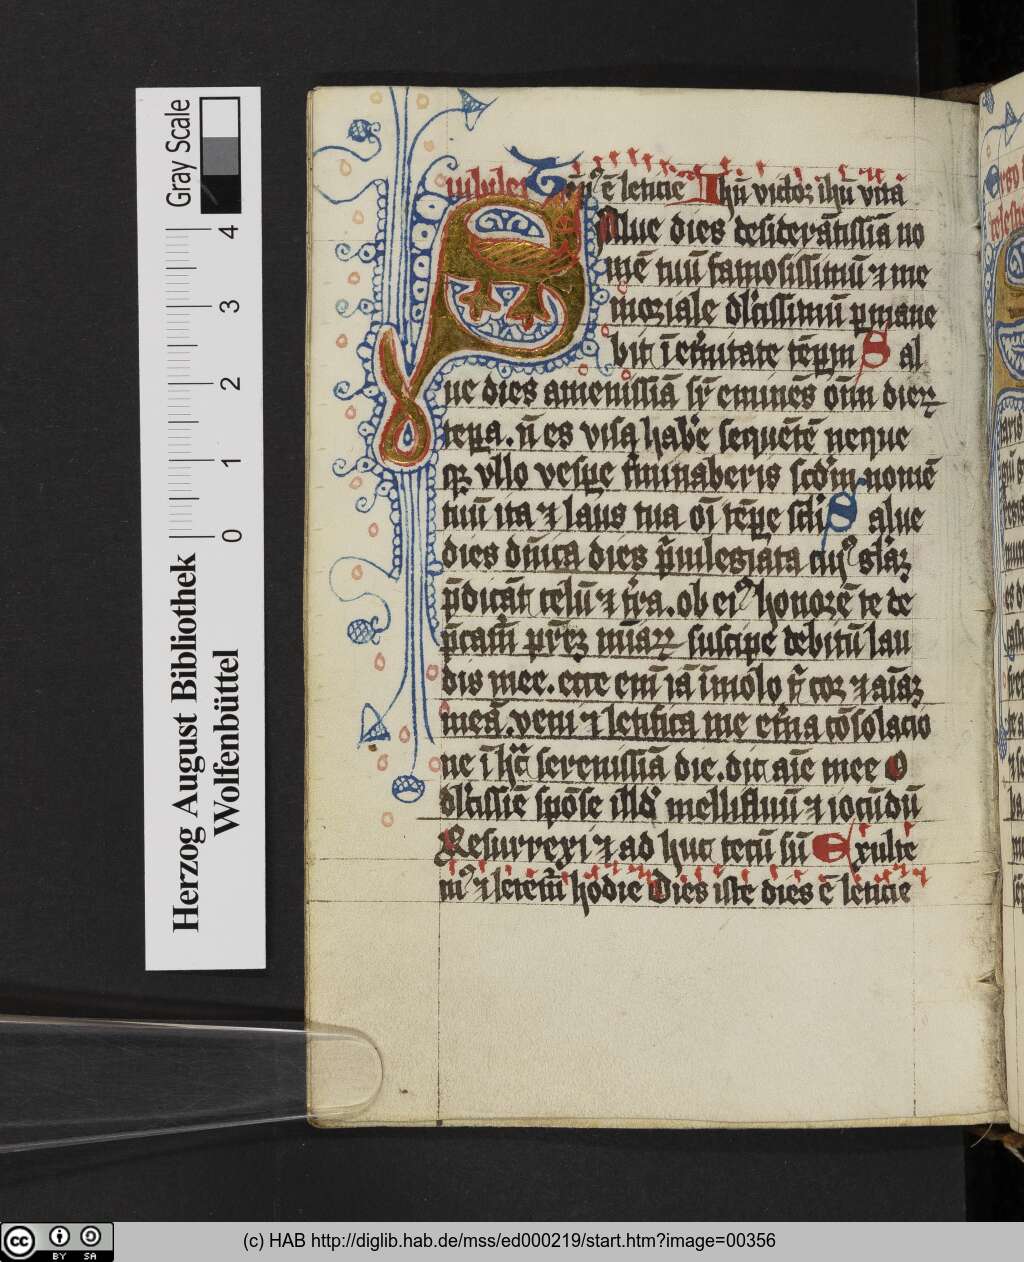 Gray Scale
4
3
2
1
0
Herzog August Bibliothek
Wolfenbüttel
iubilei ē leticie Ihū victor ihū vita
Salue dies desiderātissīa no
mē tuū famosissimū ⁊ me
moriale dl'cissimū ꝑmane
bit ī et'nitate tēꝑm Sal
ue dies amenissīa sꝑ eminēs oīm dieꝝ
teꝑa. n̄ es visa hab'e sequētē neque
qꝫ vllo vesꝑe t'minaberis scd'm nomē
tuū ita ⁊ laus tua oī tēꝑe sc'li Salue
dies dn̄ica dies p'uilegiata cuiꝰ gl'aꝫ
p̄dicāt celū ⁊ t'ra. ob eiꝰ honorē te de
p̄cam̄ suscipe debitū lau
dis mee. ecce em̄ iā īmolo t' cor ⁊ aīaꝫ
meā. veni ⁊ letifica me et'na cōsolacio
ne ī hac serenissīa die. dic aīe mee O
dl'cissīe spōse illd' mellifluū ⁊ iocūdū
Resurrexi ⁊ adhuc tecū sū Exulte
mꝰ ⁊ letem̄ hodie Dies iste dies ē leticie
BY SA
(c) HAB http://diglib.hab.de/mss/ed000219/start.htm?image=00356